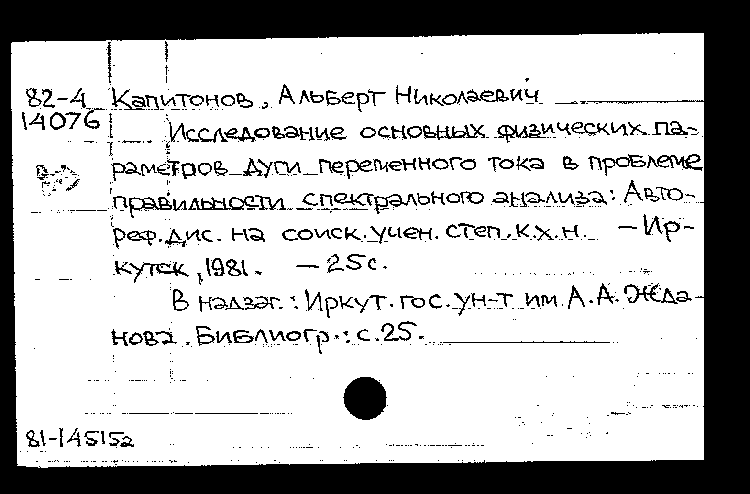 82-4 Капитонов, Альберт Николаевич
14076
Исследование основных физических па-
раметров дуги переменного тока в проблеме
правильности спектрального анализа: Авто-
реф. дис. на соиск. учен. степ. к.х.н. — Ир-
кутск, 1981. — 25с.
В надзаг.: Иркут. гос. ун-т им А.А. Жда-
нова. Библиогр.: с.25.
81-145152